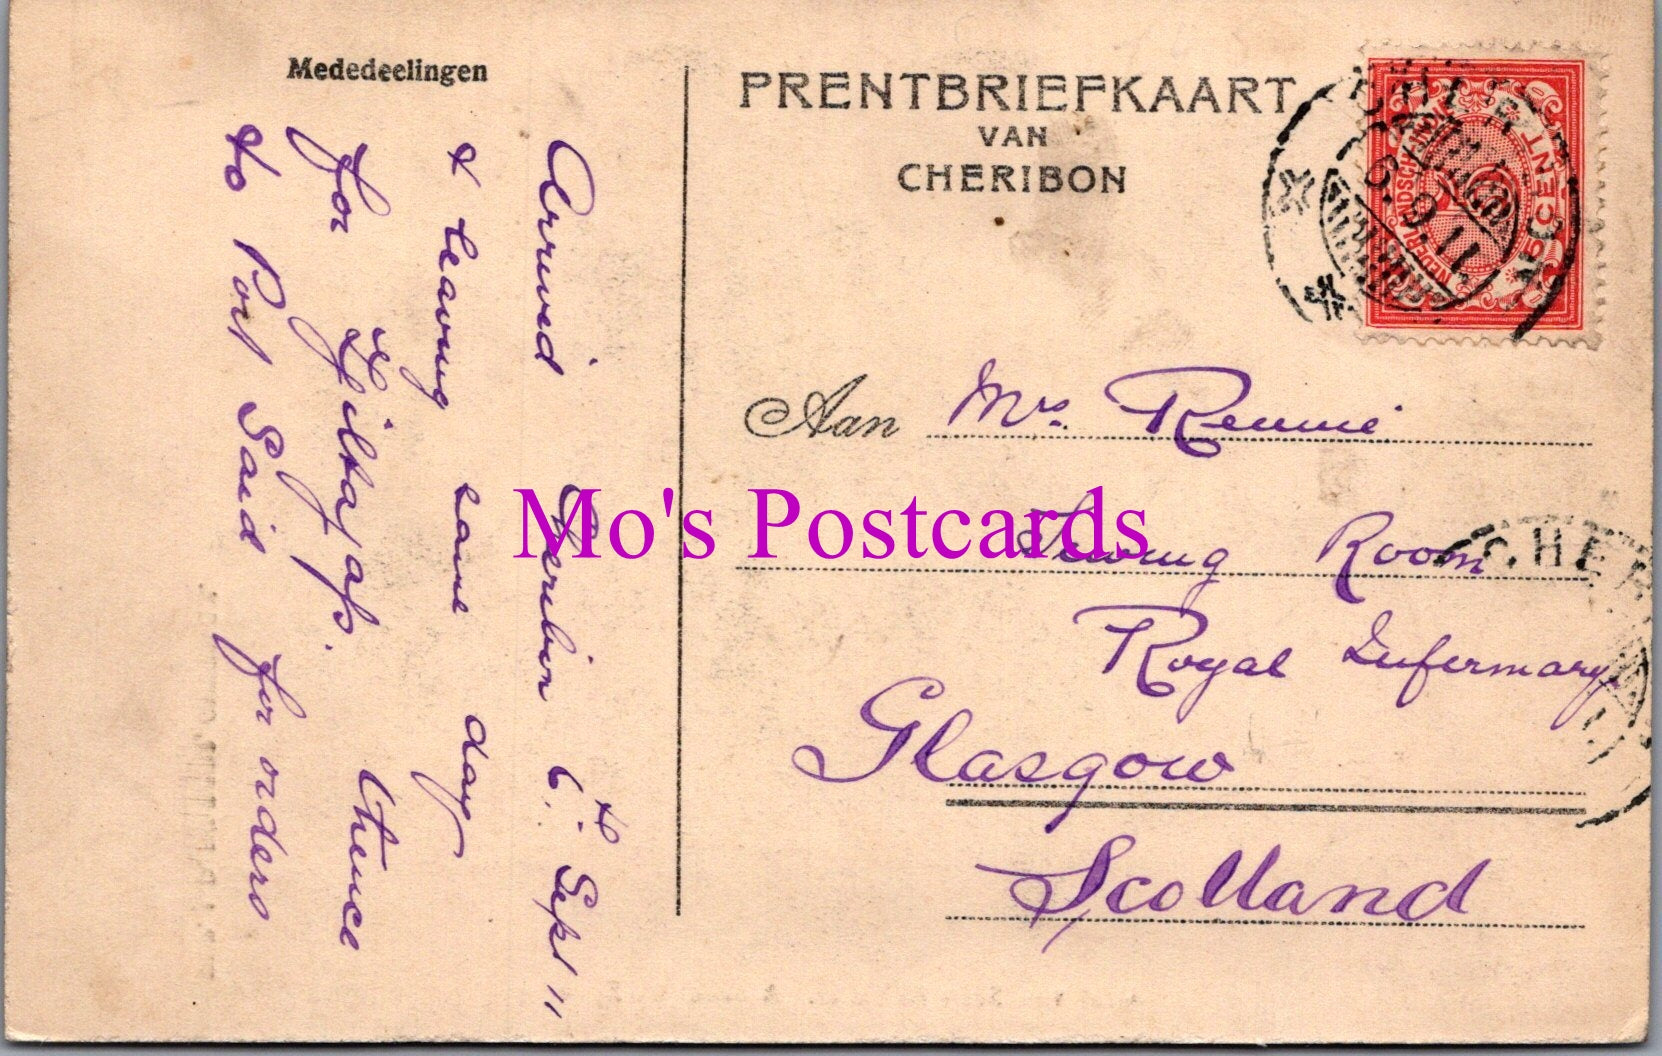 Mededeelingen
PRENTBRIEFKAART
VAN
CHERIBON
Arrived Cheribon 6th Sept 11
& leaving same day
for Tjiltatjap. thence
to Port Said for orders
NEDERLANDSCH-INDIË
5 CENT
CHERIBON
6.9.11
Aan Mrs. Rennie
Sewing Room
Royal Infermary
Glasgow
Scotland
CHER
11
Mo's Postcards